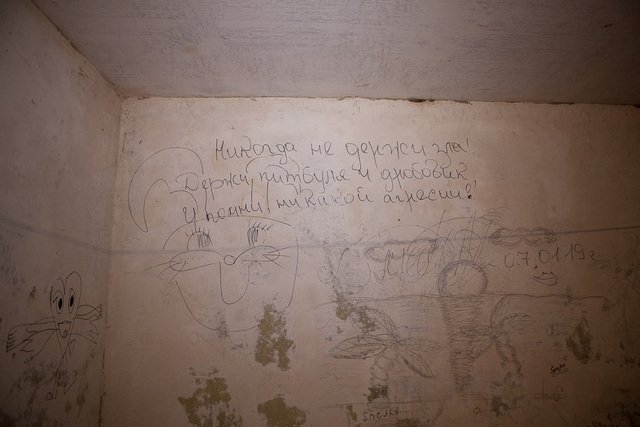 Никогда не держи зла!
Держи питбуля и дробовик
И помни никакой агресии!
07.01.19г